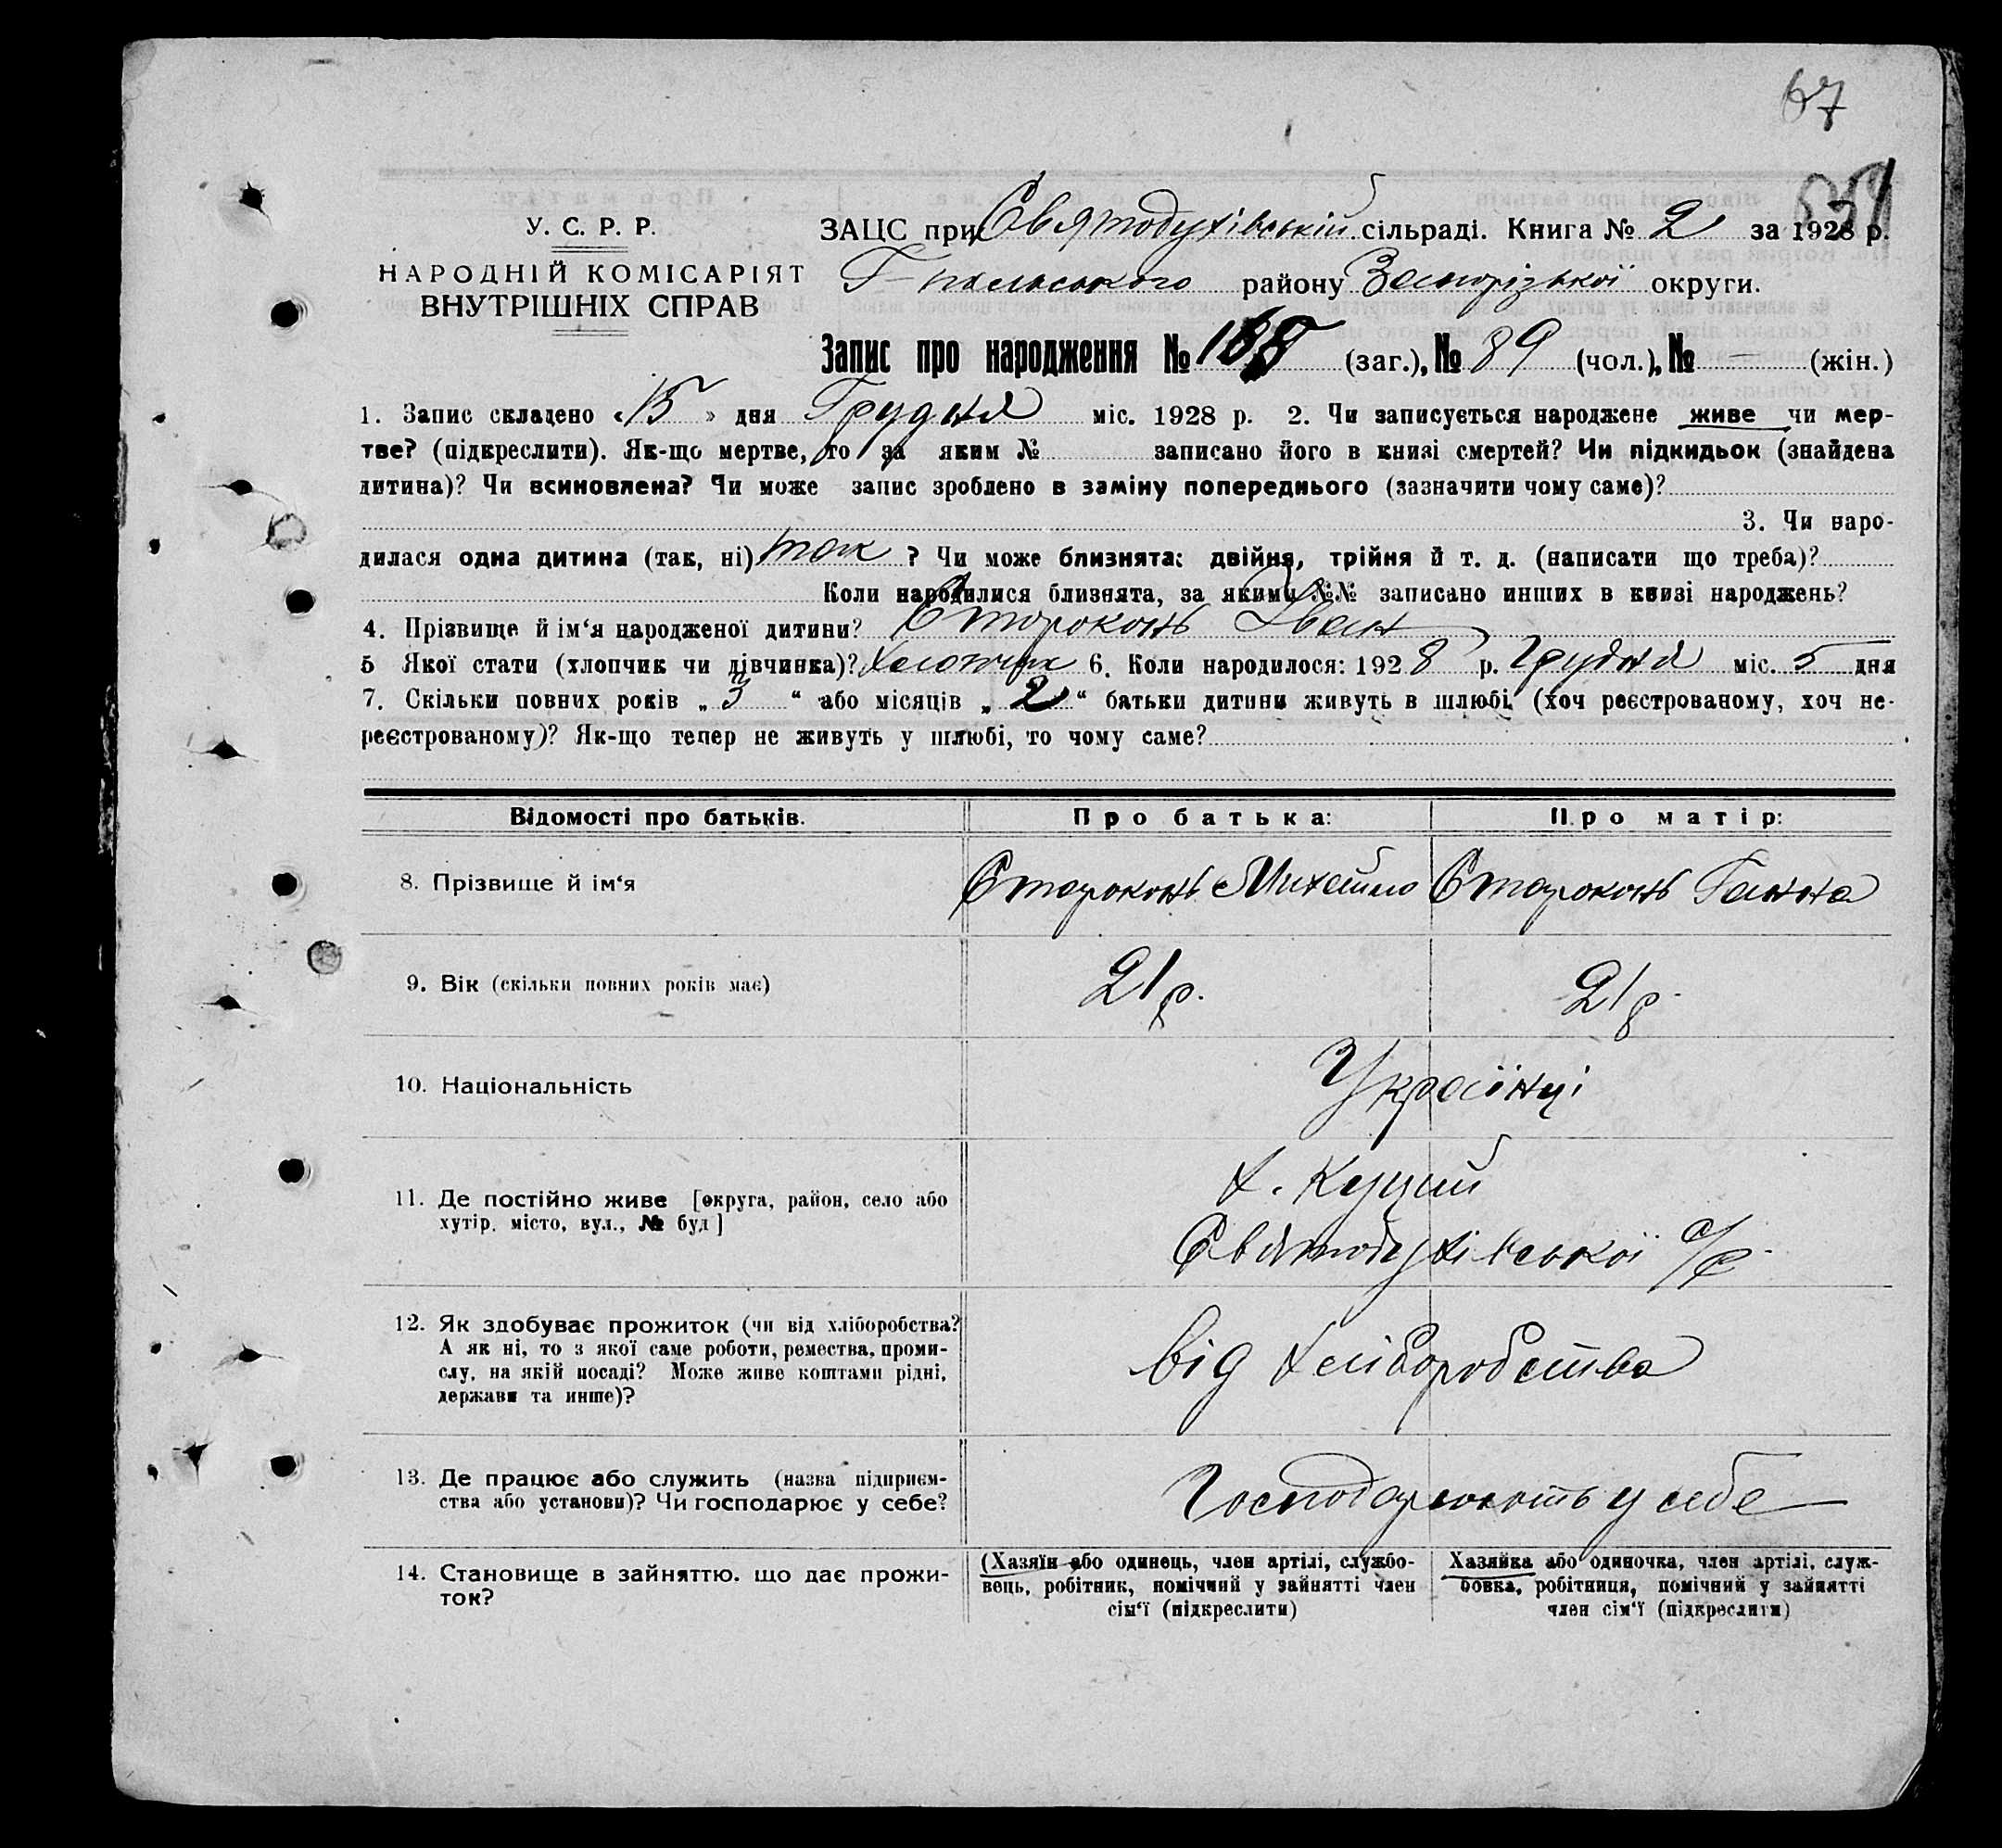 67
У. С. Р. Р.
НАРОДНІЙ КОМІСАРІЯТ
ВНУТРІШНІХ СПРАВ
ЗАЦС при Святодухівській сільраді. Книга № 2 за 1928 р.
району Запорізької округи.
Запис про народження № 188 (заг.), № 89 (чол.), № — (жін.)
1. Запис складено «15» дня Грудня міс. 1928 р. 2. Чи записується народжене живе чи мер-
тве? (підкреслити). Як-що мертве, то за яким № записано його в книзі смертей? Чи підкидьок (знайдена
дитина)? Чи всиновлена? Чи може запис зроблено в заміну попереднього (зазначити чому саме)?
3. Чи наро-
дилася одна дитина (так, ні) так ? Чи може близнята: двійня, трійня й т. д. (написати що треба)?
Коли народилися близнята, за якими №№ записано инших в книзі народжень?
4. Прізвище й ім‘я народженої дитини? Стороконь Іван
5 Якої стати (хлопчик чи дівчинка)? Хлопчик 6. Коли народилося: 1928 р. Грудня міс. 5 дня
7. Скільки повних років „ 3 “ або місяців „ 2 “ батьки дитини живуть в шлюбі (хоч реєстрованому, хоч не-
реєстрованому)? Як-що тепер не живуть у шлюбі, то чому саме?
Відомості про батьків. Про батька: Про матір:
8. Прізвище й ім‘я Стороконь Михайло Стороконь Ганна
9. Вік (скільки повних років має) 21 р. 21 р.
10. Національність Українці
11. Де постійно живе [округа, район, село або
хутір, місто, вул., № буд]
х. Куций
Святодухівської с/р.
12. Як здобуває прожиток (чи від хліборобства?
А як ні, то з якої саме роботи, ремества, проми-
слу, на якій посаді? Може живе коштами рідні,
держави та инше)?
від хліборобства
13. Де працює або служить (назва підприєм-
ства або установи)? Чи господарює у себе?
Господарюють у себе
14. Становище в зайняттю, що дає прожи-
ток?
(Хазяїн або одинець, член артілі, службо-
вець, робітник, помічний у зайнятті член
сім‘ї (підкреслити)
Хазяйка або одиночка, член артілі, служ-
бовка, робітниця, помічний у зайнятті
член сім‘ї (підкреслити)